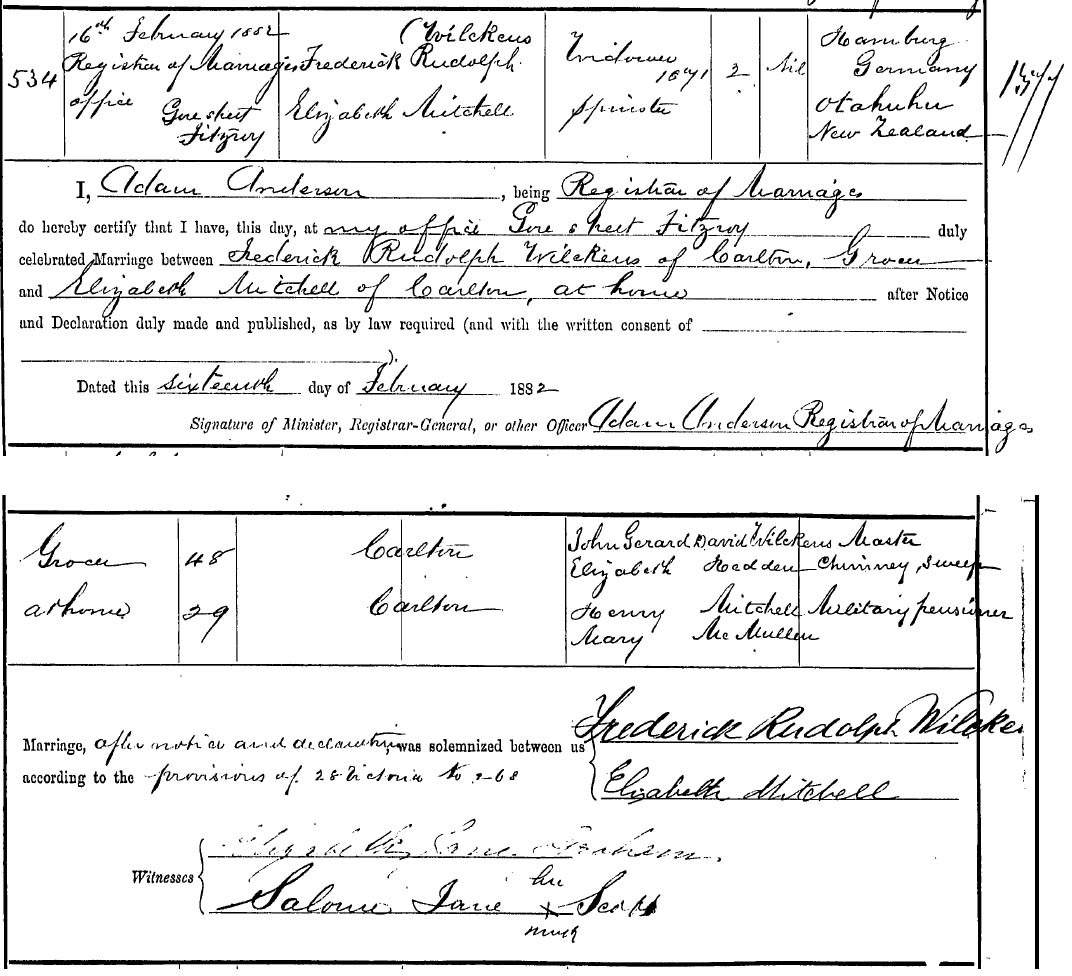 534
16th February 1882
Registrar of Marriages
office Gore street
Fitzroy
(Wilckens
Frederick Rudolph
Elizabeth Mitchell
Widower
1871
Spinster
2
Nil
Hamburg
Germany
Otahuhu
New Zealand
I, Adam Anderson, being Registrar of Marriages
do hereby certify that I have, this day, at my office Gore street Fitzroy duly
celebrated Marriage between Frederick Rudolph Wilckens of Carlton, Grocer
and Elizabeth Mitchell of Carlton, at home after Notice
and Declaration duly made and published, as by law required (and with the written consent of
).
Dated this sixteenth day of February 1882
Signature of Minister, Registrar-General, or other Officer Adam Anderson Registrar of Marriages
Grocer 48 Carlton John Gerard David Wilckens Master
Elizabeth Hedden Chimney Sweep
at home 29 Carlton Henry Mitchell Military pensioner
Mary McMullen
Marriage, after notice and declaration, was solemnized between us Frederick Rudolph Wilcke
according to the provisions of 28 Victoria No 268
Elizabeth Mitchell
Witnesses
Elizabeth Jane
her
Salome Jane x Scott
mark